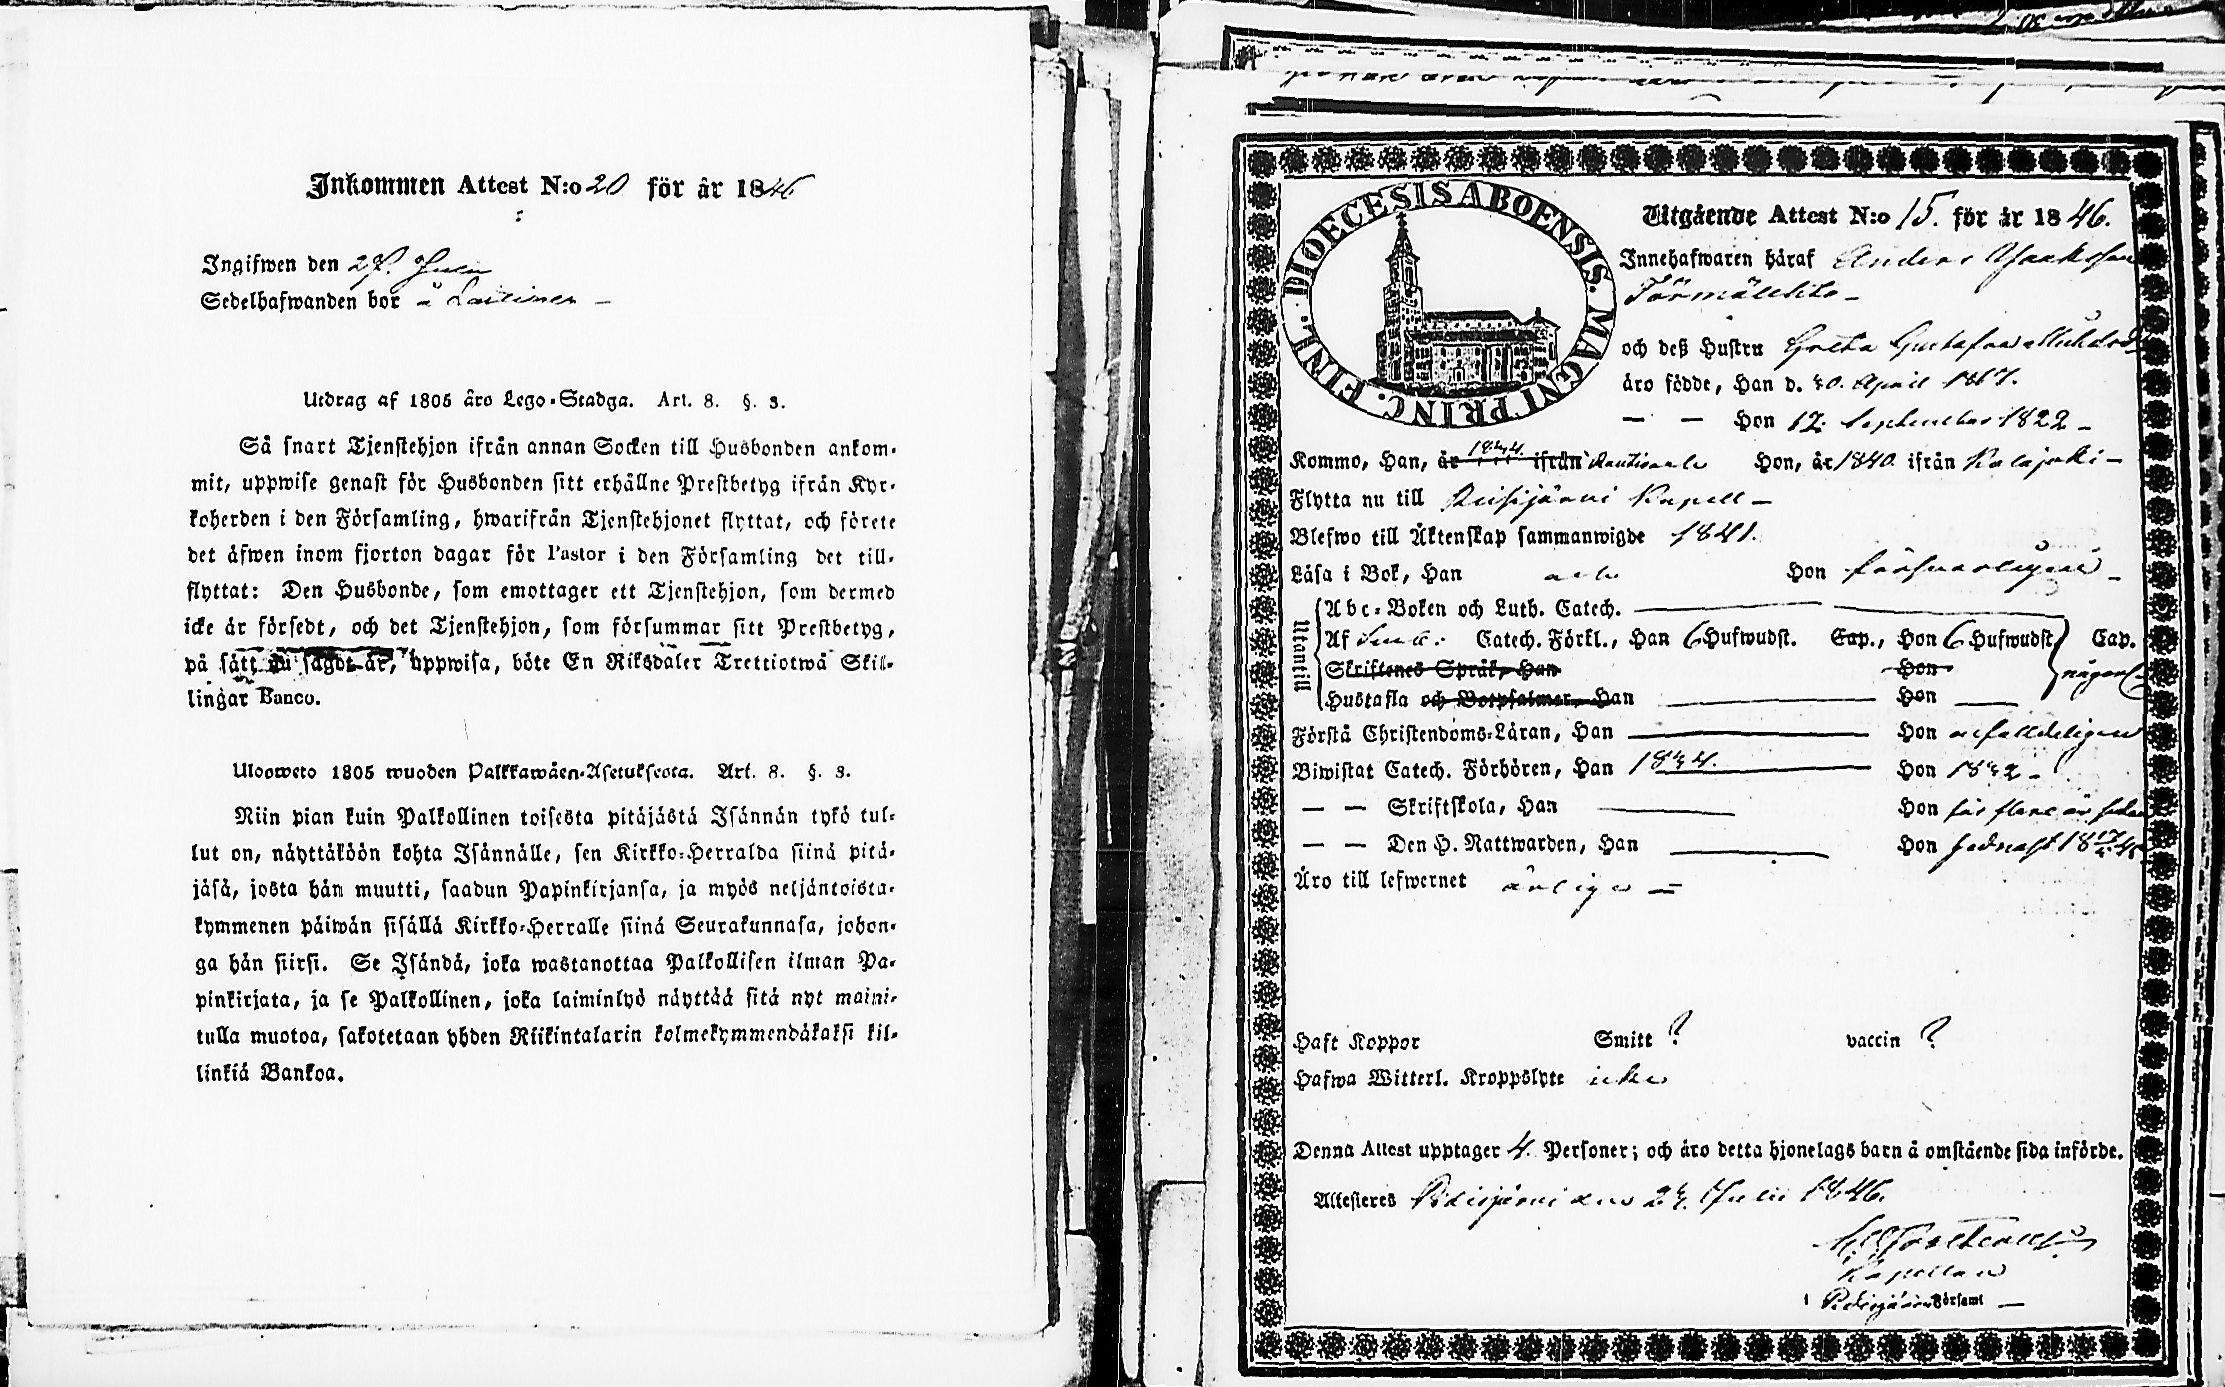 Inkommen Attest N:o 20 för år 1846
Ingifwen den 27. Julii
Sedelhafwanden bor å
Utdrag af 1805 åro Lego-Stadga. Art. 8. §. 3.
Så snart Tjenstehjon ifrån annan Socken till Husbonden ankom-
mit, uppwise genast för Husbonden sitt erhållne Prestbetyg ifrån Kyr-
koherden i den Församling, hwarifrån Tjenstehjonet flyttat, och förete
det äfwen inom fjorton dagar för Pastor i den Församling det till-
flyttat: Den Husbonde, som emottager ett Tjenstehjon, som dermed
icke är försedt, och det Tjenstehjon, som försummar sitt Prestbetyg,
på sätt nu sagdt är, uppwisa, böte En Riksdaler Trettiotwå Skil-
lingar Banco.
Ulosweto 1805 wuoden Palkkawäen-Asetuksesta. Art. 8. §. 3.
Niin pian kuin Palkollinen toisesta pitäjästä Isännän tykö tul-
lut on, näyttäköön kohta Isännälle, sen Kirkko-Herralda siinä pitä-
jäsä, josta hän muutti, saadun Papinkirjansa, ja myös neljäntoista-
kymmenen päiwän sisällä Kirkko-Herralle siinä Seurakunnasa, johon-
ga hän siirsi. Se Isändä, joka wastanottaa Palkollisen ilman Pa-
pinkirjata, ja se Palkollinen, joka laiminlyö näyttää sitä nyt maini-
tulla muotoa, sakotetaan yhden Riikintalarin kolmekymmendäkaksi kil-
linkiä Bankoa.
DIOECESIS ABOENSIS. MAGNI PRINC. FINL.
Utgående Attest N:o 15. för år 1846.
Innehafwaren häraf Anders
och deß Hustru Greta Gustafsdr
äro födde, Han d. April
— — Hon 12. September 1822 —
Kommo, Han, år 1844. ifrån Rautio Hon, år 1840. ifrån Kalajoki —
Flytta nu till Reisjärvi Kapell —
Blefwo till Äktenskap sammanwigde 1841.
Läsa i Bok, Han och Hon försvarligen —
Utontill
Abc-Boken och Luth. Catech.
Af Catech. Förkl., Han 6 Hufwudst. Cap., Hon 6 Hufwudst. Cap.
Skriftenes Språk, Han Hon
Hustafla och Botpsalmer, Han Hon
Förstå Christendoms-Läran, Han Hon enfalldeligen
Biwistat Catech. Förhören, Han 1844. Hon 1842 —
— — Skriftskola, Han Hon för flere år sedan
— — Den H. Nattwarden, Han Hon sednast
Äro till lefwernet ärlige —
Haft Koppor Smitt ? vaccin ?
Hafwa Witterl. Kroppslyte icke
Denna Attest upptager 4. Personer; och äro detta hjonelags barn å omstående sida införde.
Attesteres Pidisjärvi den 24. Julii 1846.
Kapellan
i Pidisjärvi Församl —